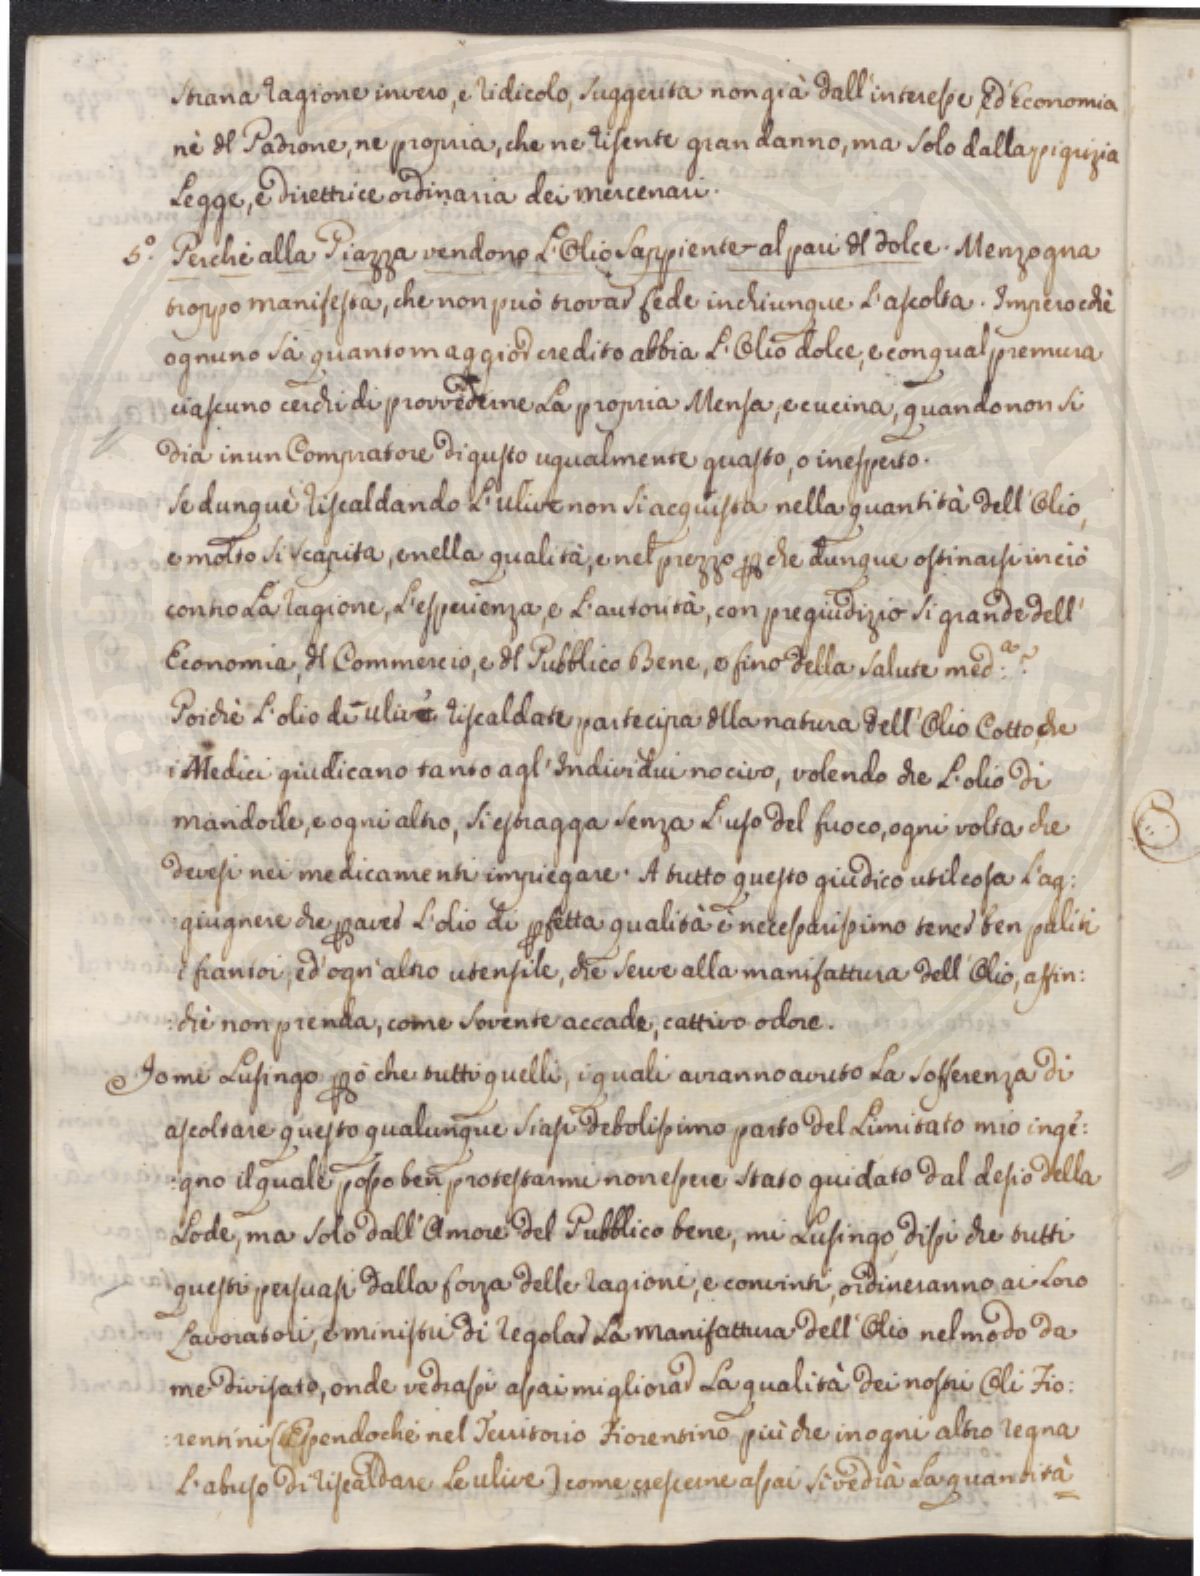 strana ragione invero, e ridicolo, suggerita non già dall'interesse, ed Economia
nè dl Padrone, ne propria, che ne risente gran danno, ma solo dalla pigrizia
Legge, e direttrice ordinaria dei mercenari.
5.° Perchè alla Piazza vendono L'Olio Sappiente al pari dl dolce. Menzogna
troppo manifesta, che non può trovar fede inchiunque L'ascolta. Imperocchè
ognuno sà quanto maggior credito abbia L'Olio dolce, e con qual premura
ciascuno cerchi di provvederne La propria Mensa, e cucina, quando non si
dia in un Compratore di gusto ugualmente guasto, o inesperto.
Se dunque riscaldando L'ulive non si acquista nella quantità dell'Olio,
e molto si scapita, e nella qualità, e nel prezzo pche dunque ostinarsi in ciò
contro La ragione, L'esperienza, e L'autorità, con pregiudizio si grande dell'
Economia, dl Commercio, e dl Pubblico Bene, e fino della salute med.ª?
Poichè L'olio di ulive riscaldate partecipa dlla natura dell'Olio Cotto, che
i Medici giudicano tanto agl'Individui nocivo, volendo che L'olio di
mandorle, e ogni altro, si estragga senza L'uso del fuoco, ogni volta che
devesi nei medicamenti impiegare. A tutto questo giudico util cosa L'ag:
:giugnere che p aver L'olio di pfetta qualità è necessarissimo tener ben politi
i frantoi, ed ogn'altro utensile, che serve alla manifattura dell'Olio, affin:
:chè non prenda, come sovente accade, cattivo odore.
Io mi Lusingo pò che tutti quelli, i quali avranno avuto La sofferenza di
ascoltare questo qualunque siasi debolissimo parto del Limitato mio inge:
:gno il quale posso ben protestarmi non essere stato guidato dal desio della
Lode, ma solo dall'Amore del Pubblico bene, mi Lusingo, dissi che tutti
questi persuasi dalla forza delle ragioni, e convinti, ordineranno ai Loro
Lavoratori, e ministri di regolar La manifattura dell'Olio nel modo da
me divisato, onde vedrassi assai migliorar La qualità dei nostri Oli Fio:
:rentini (Essendochè nel Territorio Fiorentino più che in ogni altro regna
L'abuso di riscaldare Le ulive) come crescerne assai si vedrà La quantità